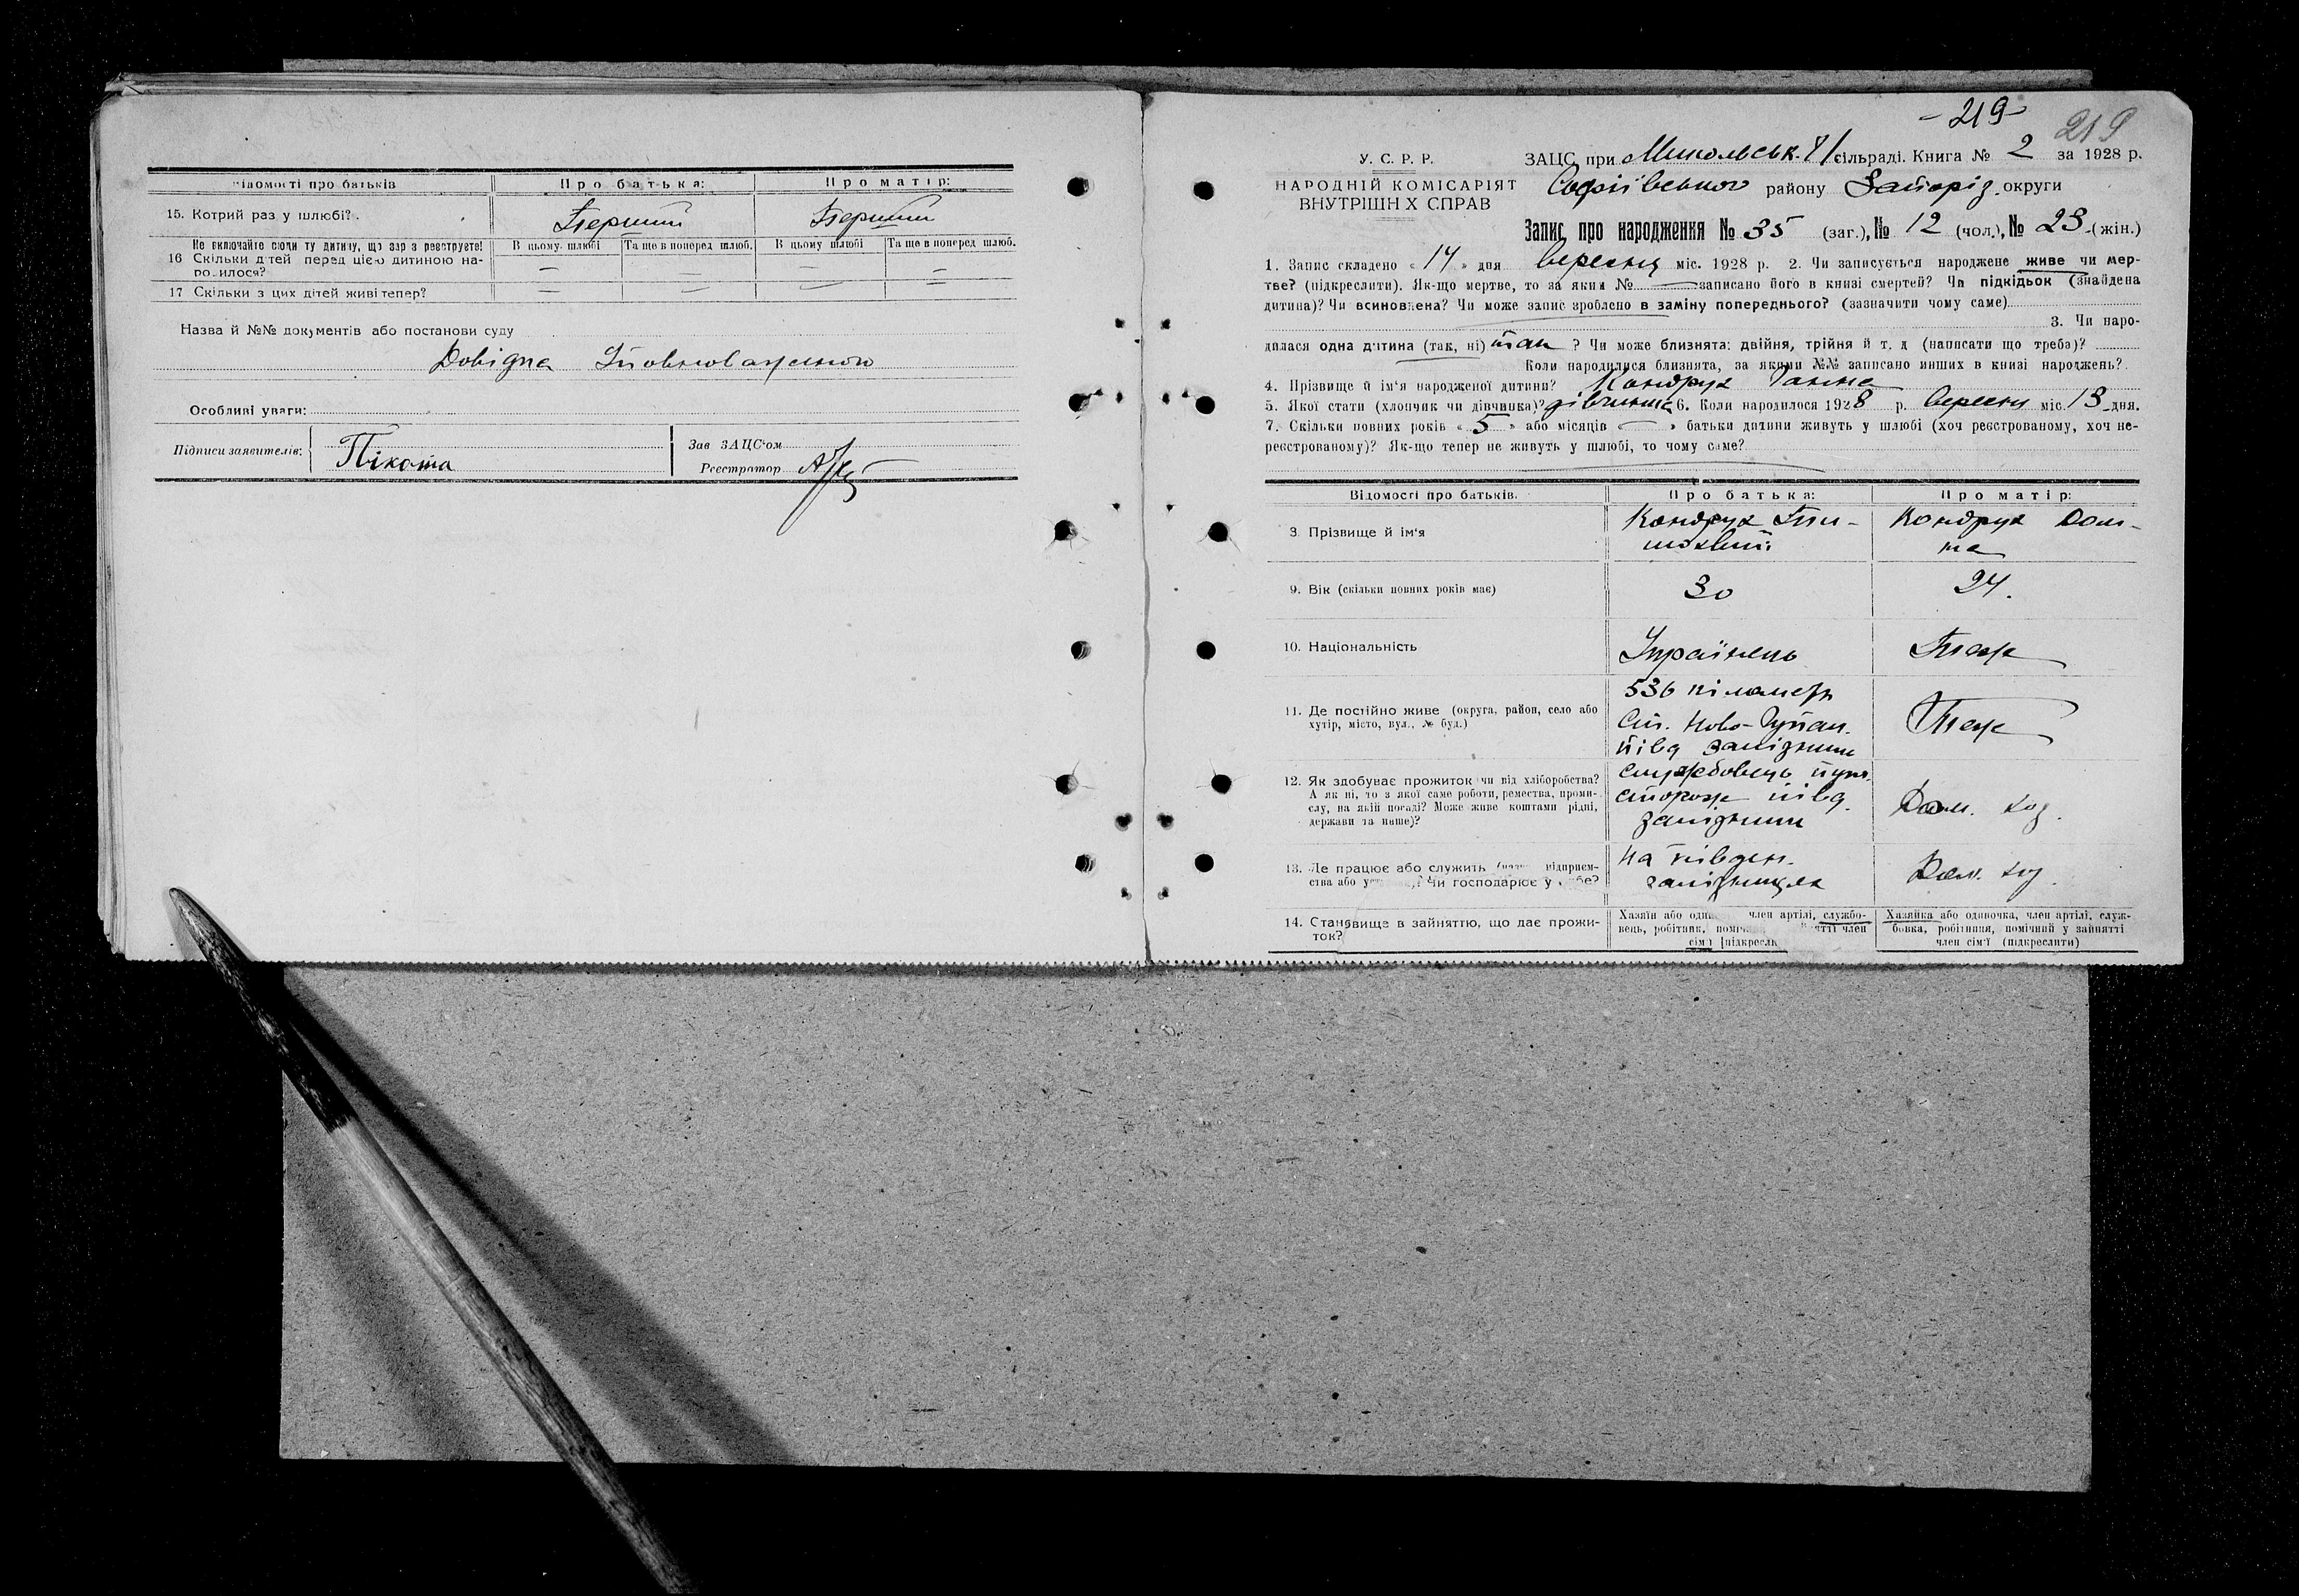 Відомості про батьків
Про батька:
Про матір:
15. Котрий раз у шлюбі?
Перший
Перший
Не включайте сюди ту дитину, що зар з реєструєте!
16 Скільки дітей перед цією дитиною на-
родилося?
В цьому шлюбі
Та ще в поперед шлюб.
В цьому шлюбі
Та ще в поперед шлюб.
17 Скільки з цих дітей живі тепер?
Назва й №№ документів або постанови суду
Довідка Уповноваженого
Особливі уваги:
Підписи заявителів:
Пікота
Зав ЗАЦС'ом
Реєстратор
-219-
219
У. С. Р. Р.
НАРОДНІЙ КОМІСАРІЯТ
ВНУТРІШН Х СПРАВ
ЗАЦС при Микольськ. сільраді. Книга № 2 за 1928 р.
Софіївського району Запоріз. округи
Запис про народження № 35 (заг.), № 12 (чол.), № 23 (жін.)
1. Запис складено « 14 » дня вересня міс. 1928 р. 2. Чи записується народжене живе чи мер-
тве? (підкреслити). Як-що мертве, то за яким № — записано його в книзі смертей? Чи підкідьок (знайдена
дитина)? Чи всиновлена? Чи може запис зроблено в заміну попереднього? (зазначити чому саме)
3. Чи наро-
дилася одна дитина (так, ні) так ? Чи може близнята: двійня, трійня й т. д (написати що треба)?
Коли народилися близнята, за якими №№ записано инших в книзі народжень?
4. Прізвище й ім'я народженої дитини? Кондрук Ганна
5. Якої стати (хлопчик чи дівчинка)? дівчинка 6. Коли народилося 1928 р. вересня міс. 13 дня.
7. Скільки повних років « 5 » або місяців « — » батьки дитини живуть у шлюбі (хоч реєстрованому, хоч не-
реєстрованому)? Як-що тепер не живуть у шлюбі, то чому саме?
Відомості про батьків.
Про батька:
Про матір:
8. Прізвище й ім'я
Кондрук Ти-
мохвій
Кондрук Дом-
на
9. Вік (скільки повних років має)
30
24.
10. Національність
Українець
Теж
11. Де постійно живе (округа, район, село або
хутір, місто, вул., № буд.)
536 кіламетр
Ст. Ново-Гупал.
півд залізниці
Теж
12. Як здобуває прожиток чи від хліборобства?
А як ні, то з якої саме роботи, ремества, проми-
слу, на якій посаді? Може живе коштами рідні,
держави та инше)?
службовець
сторож півд.
залізниці
Дом. хоз.
13. Де працює або служить (назва підприєм-
ства або у Чи господарює у себе?
На півден.
залізницях
Дом. хоз.
14. Становище в зайняттю, що дає прожи-
ток?
Хазяїн або один член артілі, службо-
вець, робітник, поміч ятті член
сім'ї [підкресл
Хазяйка або одиночка, член артілі, служ-
бовка, робітниця, помічний у зайнятті
член сім'ї (підкреслити)